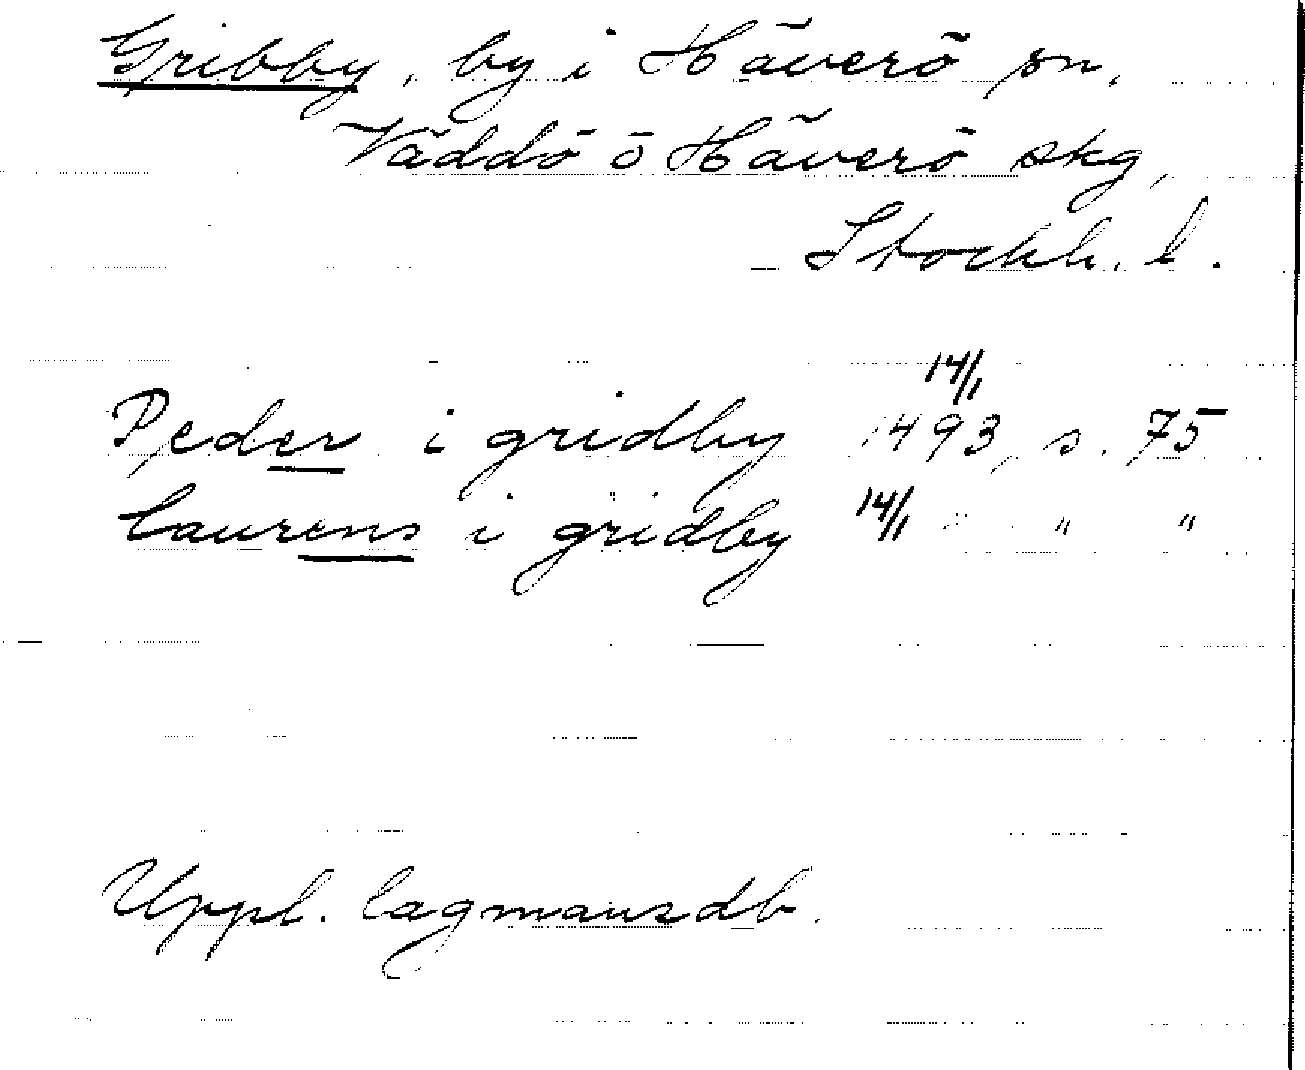 Gribby, by i Häverö sn,
Väddö o Häverö skg,
Stockh. l.
14/1
Peder i gridby 1493, s. 75
laurens i gridby 14/1 " " "
Uppl. lagmansdb.